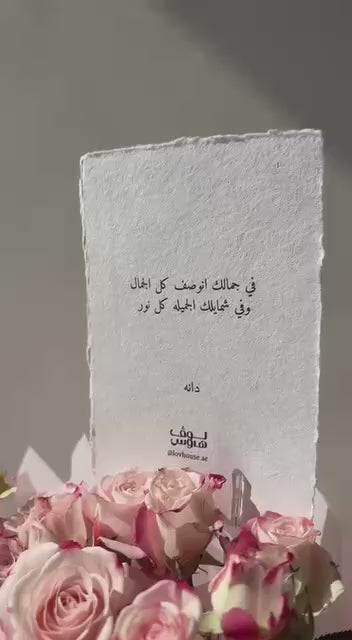 في جمالك انوصف كل الجمال
وفي شمايلك الجميله كل نور
دانه
لوڤ
هاوس
@lovhouse.ae